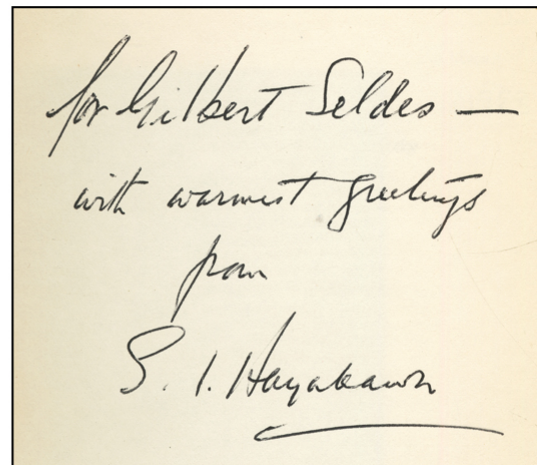 for Gilbert Seldes —
with warmest greetings
from
S. I. Hayakawa